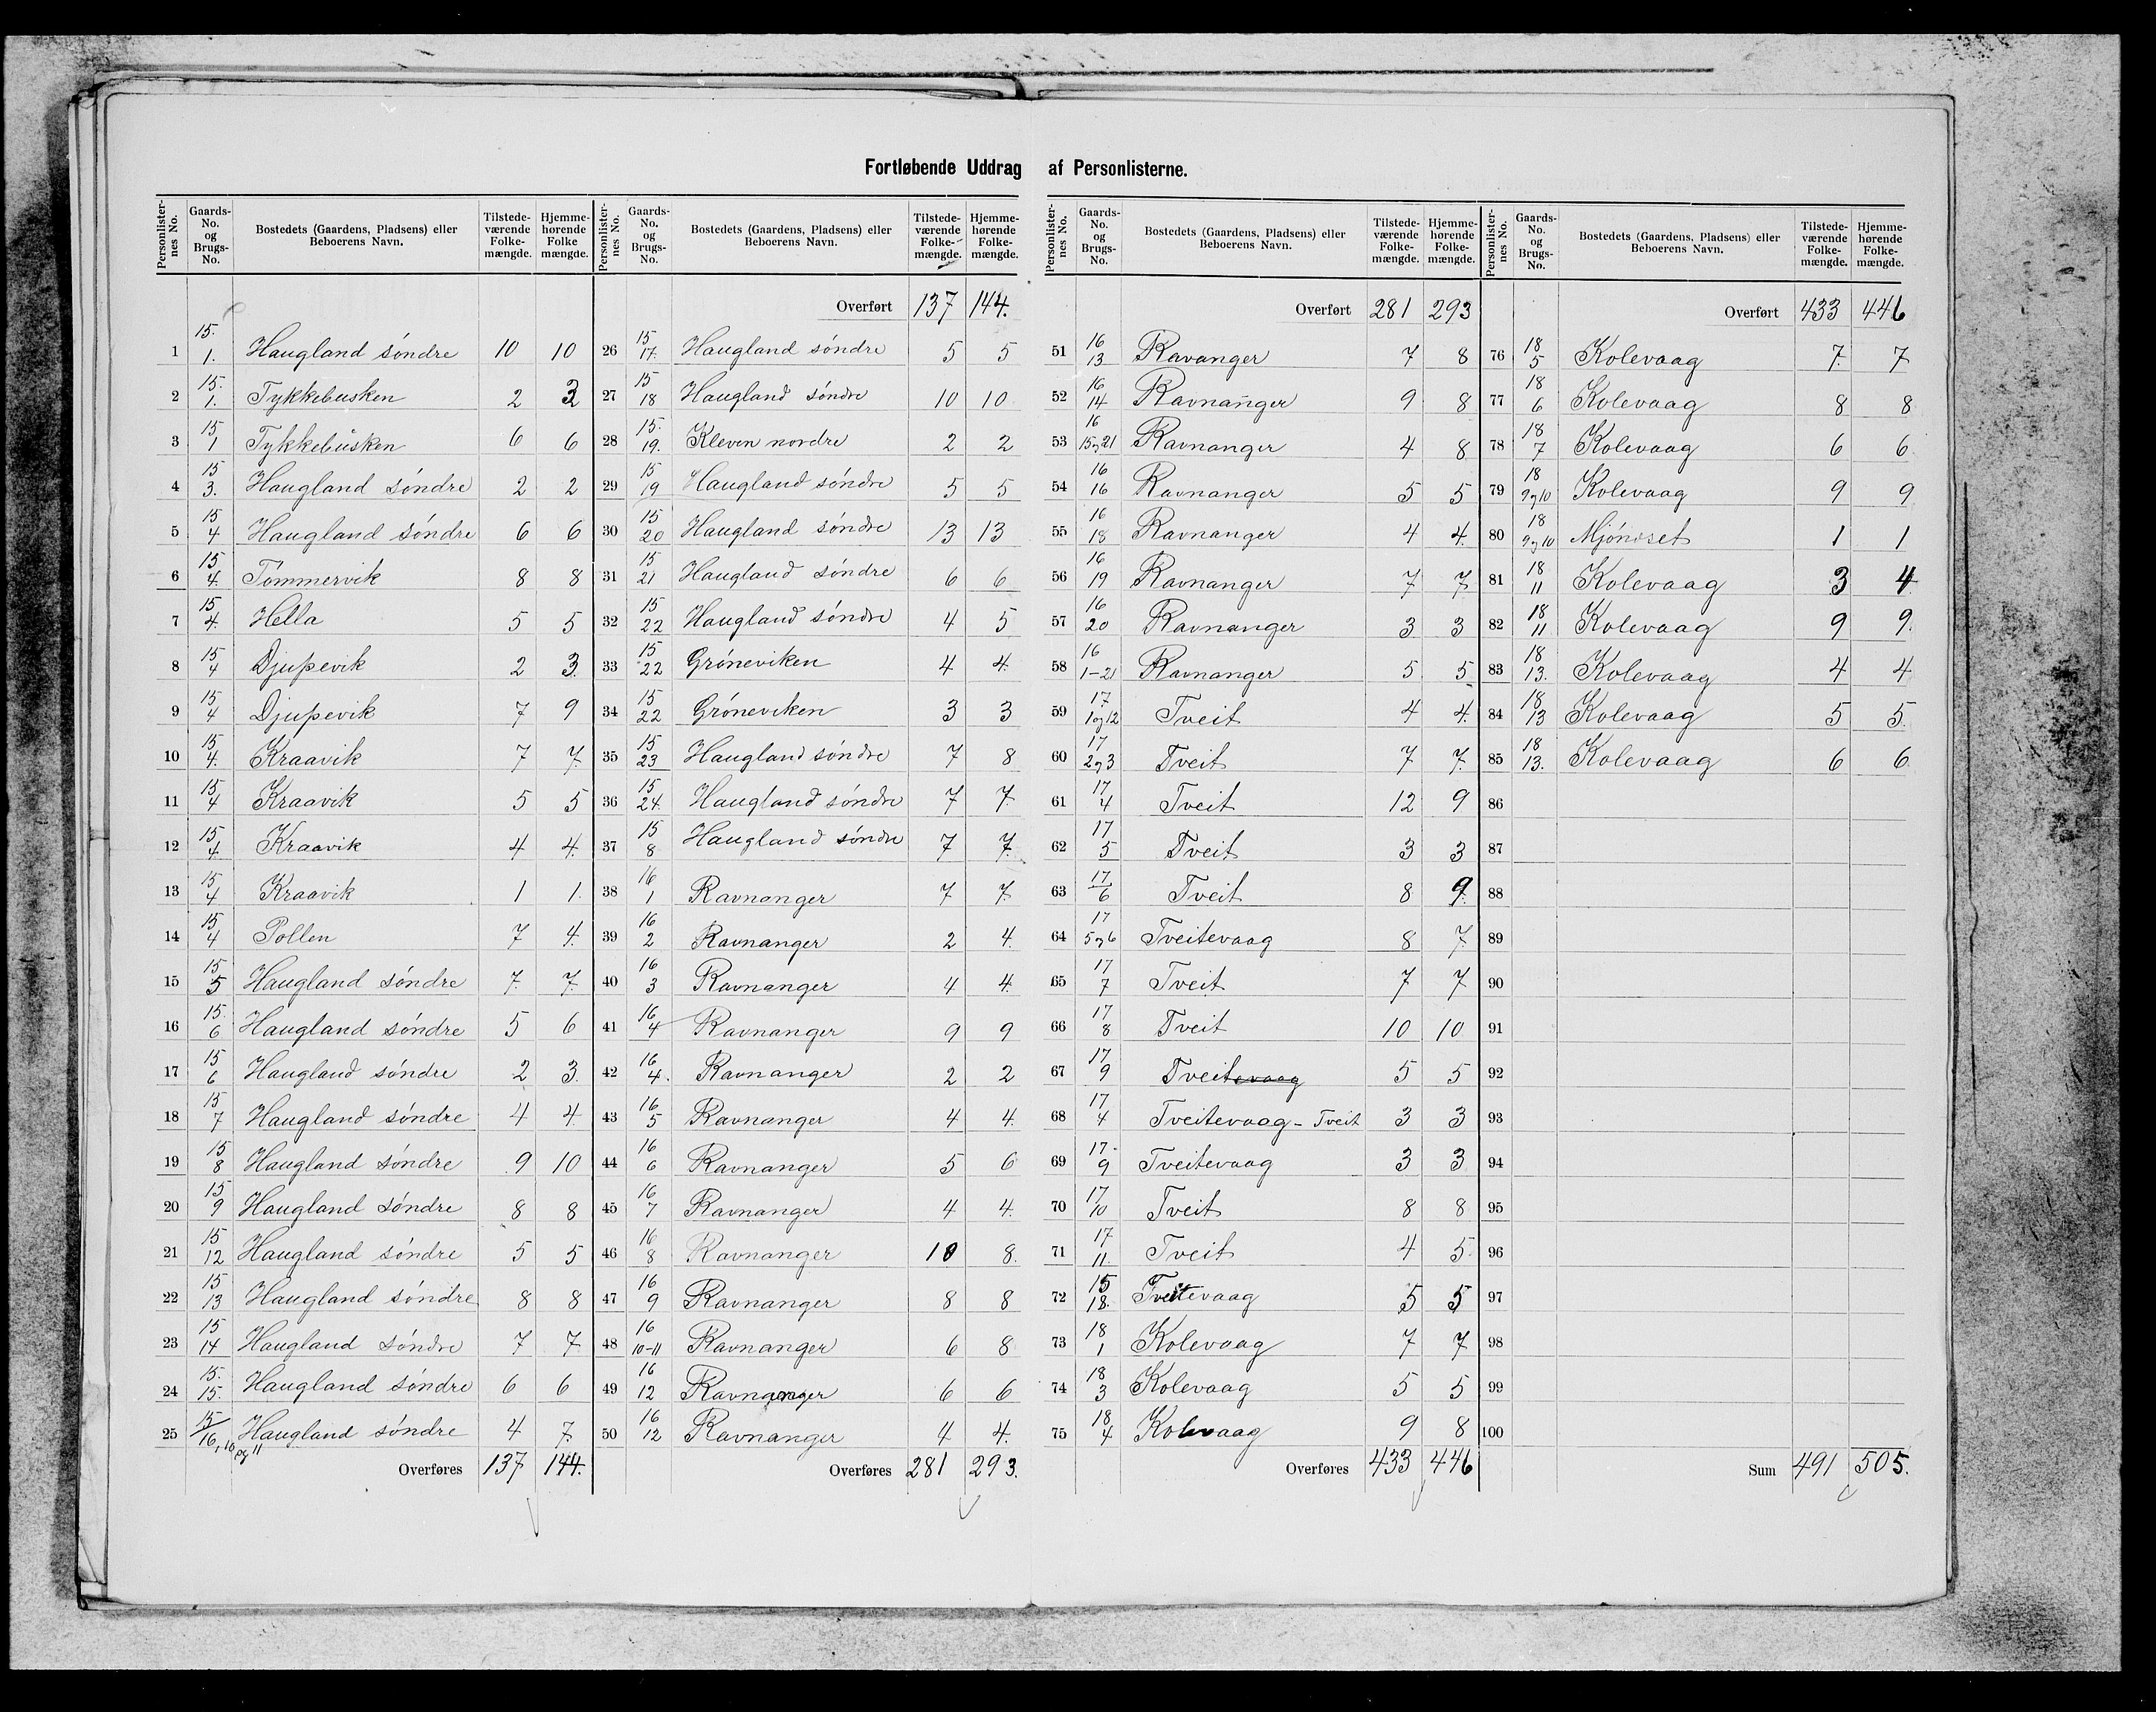 Fortløbende Uddrag af Personlisterne.
Personlisternes No. | Gaards-No. og Brugs-No. | Bostedets (Gaardens, Pladsens) eller Beboerens Navn. | Tilstedeværende Folkemængde. | Hjemmehørende Folkemængde.
1 | 15. 1. | Haugland søndre | 10 | 10
2 | 15. 1. | Tykkebusken | 2 | 3
3 | 15 1 | Tykkebusken | 6 | 6
4 | 15 3. | Haugland søndre | 2 | 2
5 | 15 4 | Haugland søndre | 6 | 6
6 | 15 4. | Tømmervik | 8 | 8
7 | 15 4. | Hella | 5 | 5
8 | 15 4 | Djupevik | 2 | 3.
9 | 15 4 | Djupevik | 7 | 9
10 | 15 4. | Kraavik | 7 | 7.
11 | 15 4 | Kraavik | 5 | 5
12 | 15 4. | Kraavik | 4 | 4.
13 | 15 4 | Kraavik | 1 | 1.
14 | 15 4 | Pollen | 7 | 4.
15 | 15 5 | Haugland søndre | 7. | 7.
16 | 15. 6 | Haugland søndre | 5 | 6
17 | 15 6 | Haugland søndre | 2 | 3.
18 | 15 7 | Haugland søndre | 4 | 4.
19 | 15 8 | Haugland søndre | 9 | 10
20 | 15 9 | Haugland søndre | 8 | 8
21 | 15 12 | Haugland søndre | 5 | 5
22 | 15 13 | Haugland søndre | 8 | 8
23 | 15 14 | Haugland søndre | 7 | 7
24 | 15. 15. | Haugland søndre | 6 | 6
25 | 15/16, 10 og 11 | Haugland søndre | 4 | 7.
Overføres 137 144.
Personlisternes No. | Gaards-No. og Brugs-No. | Bostedets (Gaardens, Pladsens) eller Beboerens Navn. | Tilstedeværende Folkemængde. | Hjemmehørende Folkemængde.
Overført 137 144.
26 | 15 17. | Haugland søndre | 5 | 5
27 | 15 18 | Haugland søndre | 10 | 10
28 | 15. 19. | Kleven nordre | 2 | 2
29 | 15 19 | Haugland søndre | 5 | 5
30 | 15 20 | Haugland søndre | 13 | 13
31 | 15 21 | Haugland søndre | 6 | 6
32 | 15 22 | Haugland søndre | 4 | 5
33 | 15 22 | Grøneviken | 4 | 4.
34 | 15 22 | Grøneviken | 3 | 3
35 | 15 23 | Haugland søndre | 7 | 8
36 | 15 24. | Haugland søndre | 7 | 7.
37 | 15 8 | Haugland søndre | 7 | 7.
38 | 16 1 | Ravnanger | 7 | 7.
39 | 16 2 | Ravnanger | 2 | 4.
40 | 16 3 | Ravnanger | 4 | 4.
41 | 16 4 | Ravnanger | 9 | 9
42 | 16 4. | Ravnanger | 2 | 2
43 | 16 5 | Ravnanger | 4 | 4.
44 | 16 6 | Ravnanger | 5 | 6
45 | 16 7 | Ravnanger | 4 | 4.
46 | 16 8 | Ravnanger | 10 | 8.
47 | 16 9 | Ravnanger | 8 | 8
48 | 16 10-11 | Ravnanger | 6 | 8
49 | 16 12 | Ravnanger | 6 | 6
50 | 16 12 | Ravnanger | 4 | 4.
Overføres 281 293.
Personlisternes No. | Gaards-No. og Brugs-No. | Bostedets (Gaardens, Pladsens) eller Beboerens Navn. | Tilstedeværende Folkemængde. | Hjemmehørende Folkemængde.
Overført 281 293
51 | 16 13 | Ravanger | 7 | 8
52 | 16 14 | Ravnanger | 9 | 8
53 | 16 15 og 21 | Ravnanger | 4 | 8
54 | 16 16 | Ravnanger | 5 | 5
55 | 16 18 | Ravnanger | 4 | 4.
56 | 16 19 | Ravnanger | 7 | 7
57 | 16 20 | Ravnanger | 3 | 3
58 | 16 1-21 | Ravnanger | 5 | 5
59 | 17. 1 og 12 | Tveit | 4 | 4.
60 | 17 2 og 3 | Tveit | 7 | 7.
61 | 17 4 | Tveit | 12 | 9
62 | 17 5 | Tveit | 3 | 3
63 | 17 6 | Tveit | 8 | 9.
64 | 17 5 og 6 | Tveitevaag | 8 | 7.
65 | 17 7 | Tveit | 7 | 7
66 | 17 8 | Tveit | 10 | 10
67 | 17 9 | Tveitevaag | 5 | 5
68 | 17 4 | Tveitevaag - Tveit | 3 | 3
69 | 17. 9 | Tveitevaag | 3 | 3
70 | 17 10 | Tveit | 8 | 8
71 | 17 11. | Tveit | 4 | 5
72 | 15 18. | Tveitevaag | 5 | 5
73 | 18 1 | Kolevaag | 7 | 7
74 | 18 3 | Kolevaag | 5 | 5
75 | 18 4 | Kolevaag | 9 | 8
Overføres 433 446
Personlisternes No. | Gaards-No. og Brugs-No. | Bostedets (Gaardens, Pladsens) eller Beboerens Navn. | Tilstedeværende Folkemængde. | Hjemmehørende Folkemængde.
Overført 433 446
76 | 18 5 | Kolevaag | 7. | 7
77 | 18 6 | Kolevaag | 8 | 8
78 | 18 7 | Kolevaag | 6 | 6
79 | 18 9 og 10 | Kolevaag | 9 | 9
80 | 18 9 og 10 | Mjønæset | 1 | 1
81 | 18 11 | Kolevaag | 3 | 4.
82 | 18 11 | Kolevaag | 9 | 9.
83 | 18 13. | Kolevaag | 4 | 4
84 | 18 13 | Kolevaag | 5 | 5.
85 | 18 13. | Kolevaag | 6 | 6
86
87
88
89
90
91
92
93
94
95
96
97
98
99
100
Sum 491 505.